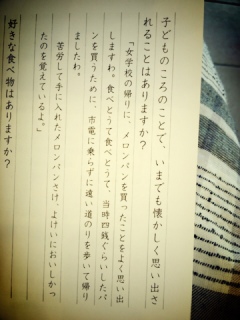 子どものころのことで、いまでも懐かしく思い出さ
れることはありますか？
「女学校の帰りに、メロンパンを買ったことをよく思い出
しますわ。食べとうて食べとうて、当時四銭ぐらいしたパ
ンを買うために、市電に乗らずに遠い道のりを歩いて帰り
ましたわ。
苦労して手に入れたメロンパンさけ、よけいにおいしかっ
たのを覚えているよ。」
好きな食べ物はありますか？